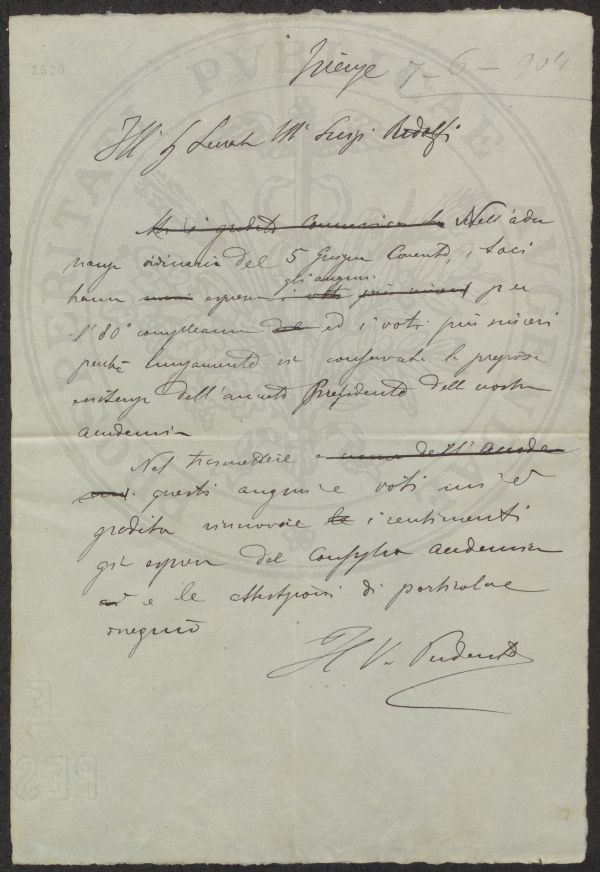 Firenze 7-6-904
Ill Sig Senat M Luigi Ridolfi
Mi è gradito comunicar Le Nell'adu
nanza ordinaria del 5 Giugno Corrente, i Soci
gli auguri
hanno espresso i voti più sinceri per
l'80° compleanno del ed i voti più sinceri
perché lungamente sia conservata la preziosa
esistenza dell'amato Presidente della nostra
accademia
Nel trasmettere a nome dell'Accade
mia questi auguri e voti mi è
gradito rinnovare le i sentimenti
già espressi dal Consiglio accademico
e le attestazioni di particolare
ossequio
Il V. Presidente
1520
PVBLICAE
PROSPERITATI